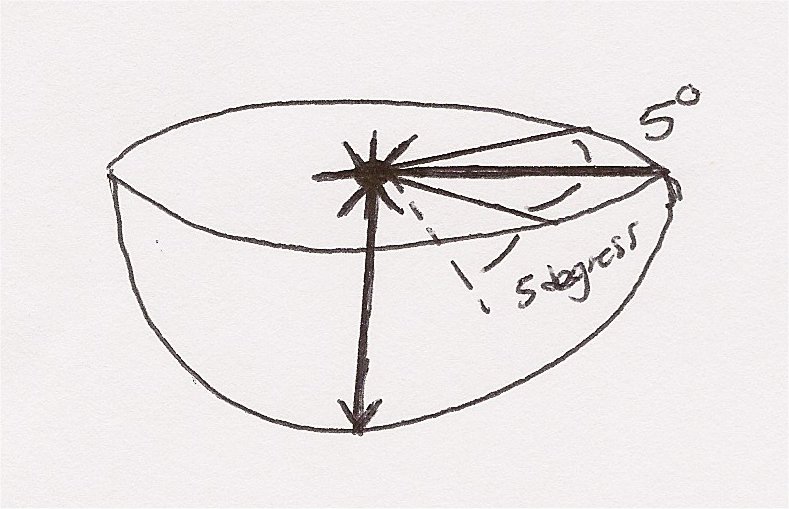 5°
5 degress